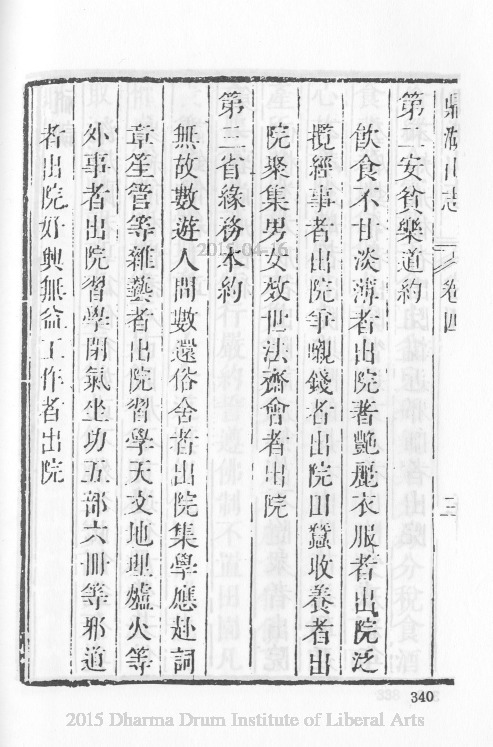 鼎湖山志 卷四 三
第二安貧樂道約
飲食不甘淡薄者出院著艷麗衣服者出院泛
攬經事者出院爭嚫錢者出院田蠶收養者出
院聚集男女效世法齋會者出院
第三省緣務本約
無故數遊人間數還俗舍者出院集學應赴詞
章笙管等雜藝者出院習學天文地理爐火等
外事者出院習學閉氣坐功五部六冊等邪道
者出院好興無益工作者出院
2015-04-16
340
2015 Dharma Drum Institute of Liberal Arts